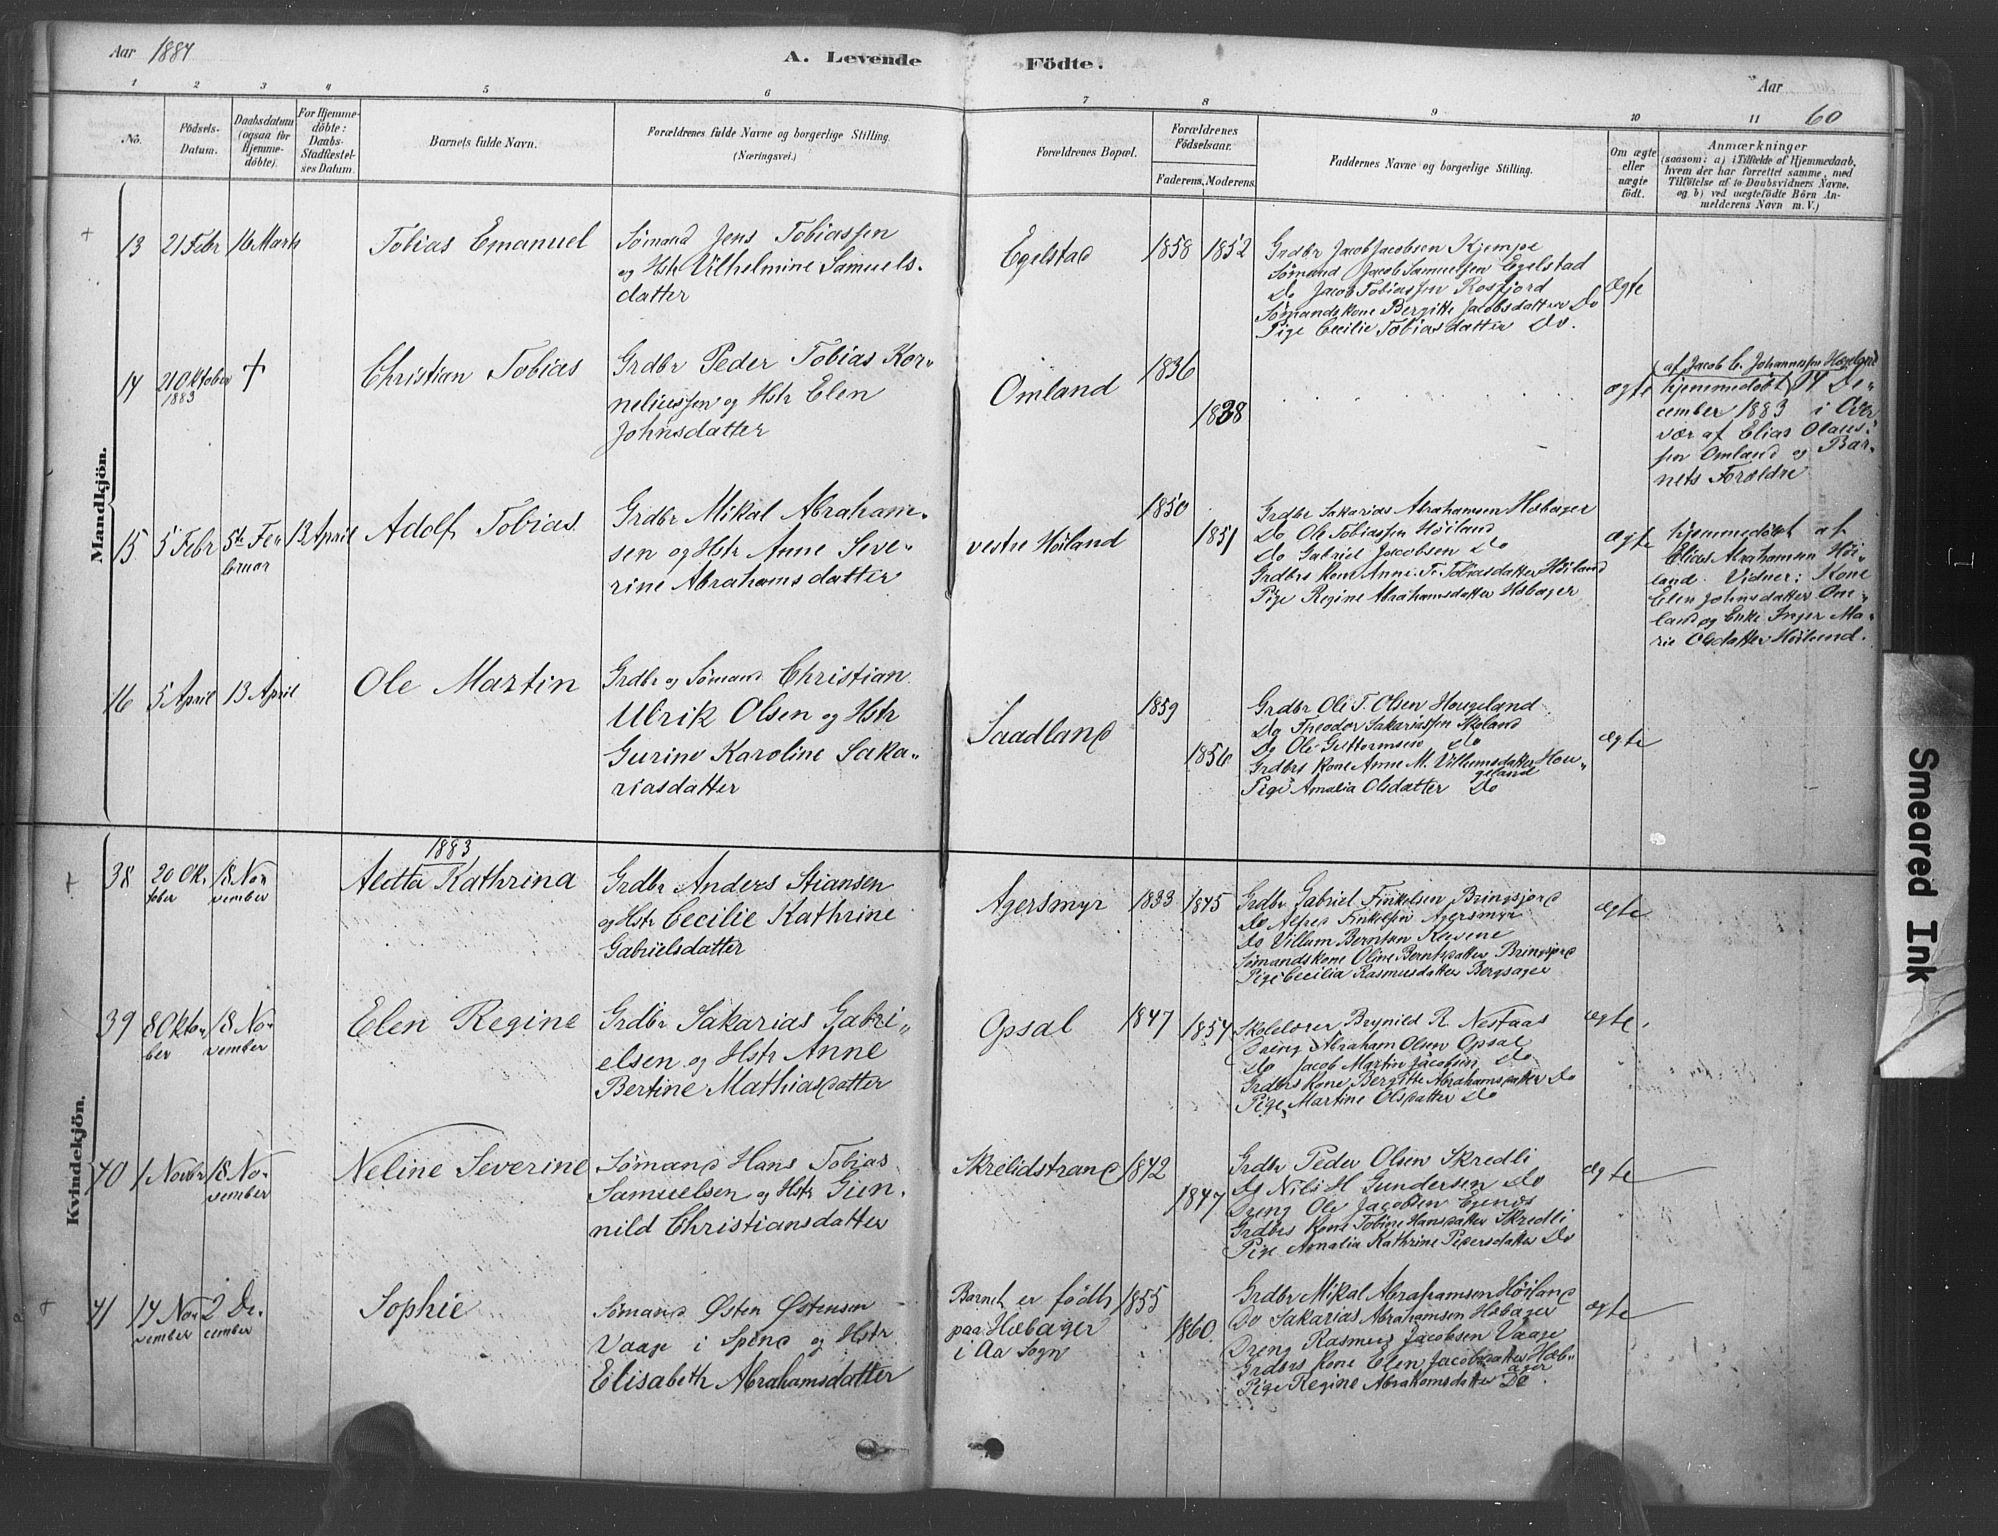 Aar 1884
A. Levende Födte.
Aar
60
1 2 3 4 5 6 7 8 9 10 11
No.
Födsels-
Datum.
Daabsdatum
(ogsaa for
Hjemme-
döbte).
For Hjemme-
döbte:
Daabs-
Stadfæstel-
ses Datum.
Barnets fulde Navn.
Forældrenes fulde Navne og borgerlige Stilling.
(Næringsvei.)
Forældrenes Bopæl.
Forældrenes
Födselsaar.
Faderens. Moderens.
Faddernes Navne og borgerlige Stilling.
Om ægte
eller
uægte
født.
Anmærkninger
(saasom: a) i Tilfælde af Hjemmedaab,
hvem der har forrettet samme, med
Tilföielse af to Daabsvidners Navne,
og b) ved uægtefödte Börn An-
melderens Navn m. V.)
Mandkjön.
+ 13 21 Febr 16 Marts
Tobias Emanuel
Sømand Jens Tobiassen
og Hstr Vilhelmine Samuels-
datter
Egelstad
1858 1852
Grdbr Jacob Jacobsen Kjempe
Sømand Jacob Samuelsen Egelstad
Do Jacob Tobiassen Rosfjord
Sømandskone Bergitte Jacobsdatter Do
Pige Cecilie Tobiasdatter Do.
Ægte
14 21 Oktober
1883
+
Christian Tobias
Grdbr Peder Tobias Kor-
neliussen og Hstr Elen
Johnsdatter
Omland
1836
1838
ægte
af Jacob C. Johannessen
hjemmedøbt 14 De-
cember 1883 i Over
vær af Elias Olaus-
sen Omland og Bar-
nets Forældre
15 5 Febr 5te Fe-
bruar
13 April
Adolf Tobias
Grdbr Mikal Abraham-
sen og Hstr Anne Seve-
rine Abrahamsdatter
vestre Höiland
1850
1851
Grdbr Sakarias Abrahamsen Hæbager
Do Ole Tobiassen Höiland
Do Gabriel Jacobsen Do
Grdbrs Kone Anne T. Tobiasdatter Höiland
Pige Regine Abrahamsdatter Hæbager
ægte
hjemmedøbt af
Elias Abrahamsen Höi-
land. Vidner: Kone
Elen Johnsdatter Om-
land og Enke Inger Ma-
rie Olsdatter Höiland.
16 5 April 13 April
Ole Martin
Grdbr og Sømand Christian
Ulrik Olsen og Hstr
Gurine Karoline Saka-
riasdatter
Saadland
1859
1856
Grdbr Ole T. Olsen Hougeland
Do Theodor Sakariassen Skoland
Do Ole Guttormsen Do
Grdbrs Kone Anne M. Villumsdatter Hou-
geland
Pige Amalia Olsdatter Do
ægte
Kvindekjön.
1883
+ 38 20 Ok-
tober
18 No-
vember
Aletta Kathrina
Grdbr Anders Stiansen
og Hstr Cecilie Kathrine
Gabrielsdatter
Agersmyr
1833 1845
Grdbr Gabriel Finkelsen Bringsjord
do Alfred Finkelsen Agersmyr
do Villum Berntsen Kavene
Sømandskone Oline Berntsdatter Bringsjord
Pige Cecilia Rasmusdatter Bergsager
ægte
39 8 Okto-
ber
18 No-
vember
Elen Regine
Grdbr Sakarias Gabri-
elsen og Hstr Anne
Bertine Mathiasdatter
Opsal
1847 1854
Skolelærer Brynild R. Nestaas
Dreng Abraham Olsen Opsal
Do Jacob Martin Jacobsen Do
Grdbrs Kone Bergitte Abrahamsdatter Do
Pige Martine Olsdatter Do
ægte
40 1 Novbr 18 No-
vember
Neline Severine
Sømand Hans Tobias
Samuelsen og Hstr Gun-
nild Christiansdatter
Skrelidstrand
1842
1847
Grdbr Peder Olsen Skredli
Do Nils H. Gundersen Do
Dreng Ole Jacobsen Egenes
Grdbrs Kone Tobine Hansdatter Skredli
Pige Amalia Kathrine Pedersdatter Do
ægte
+ 41 14 No-
vember
2 De-
cember
Sophie
Sømand Østen Østensen
Vaage i Spind og Hstr
Elisabeth Abrahamsdatter
Barnet er født
paa Hæbager
i Aa Sogn
1855
1860
Grdbr Mikal Abrahamsen Höiland
Do Sakarias Abrahamsen Hæbager
Dreng Rasmus Jacobsen Vaage
Grdbrs Kone Elen Jacobsdatter Hæb-
ager
Pige Regine Abrahamsdatter Do
ægte
Smeared Ink